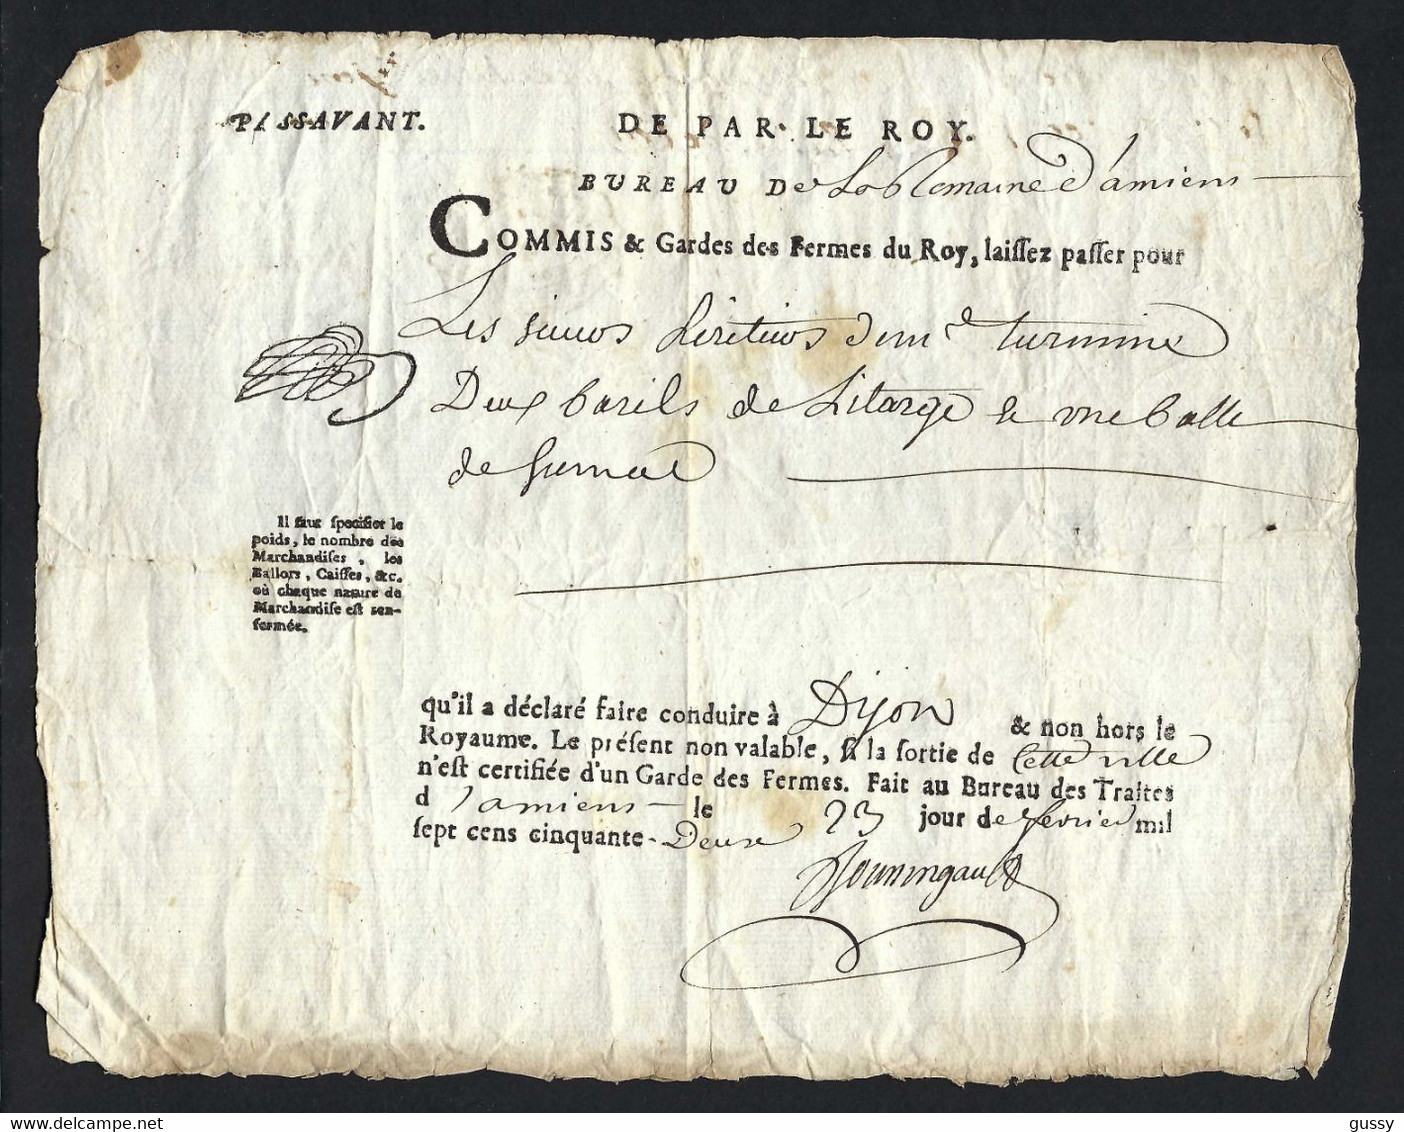 PASSAVANT.
DE PAR LE ROY.
BUREAU De La Romaine d'amiens
COMMIS & Gardes des Fermes du Roy, laissez passer pour
Les
Deux barils de Litarge & une balle
de
Il faut specifier le
poids, le nombre des
Marchandises, les
Ballots, Caisses, &c.
où chaque nature de
Marchandise est ren-
fermée.
qu'il a déclaré faire conduire à Dijon & non hors le
Royaume. Le présent non valable, si la sortie de Cette ville
n'est certifiée d'un Garde des Fermes. Fait au Bureau des Traites
d'amiens le 23 jour de fevrier mil
sept cens cinquante-Deux
gussy